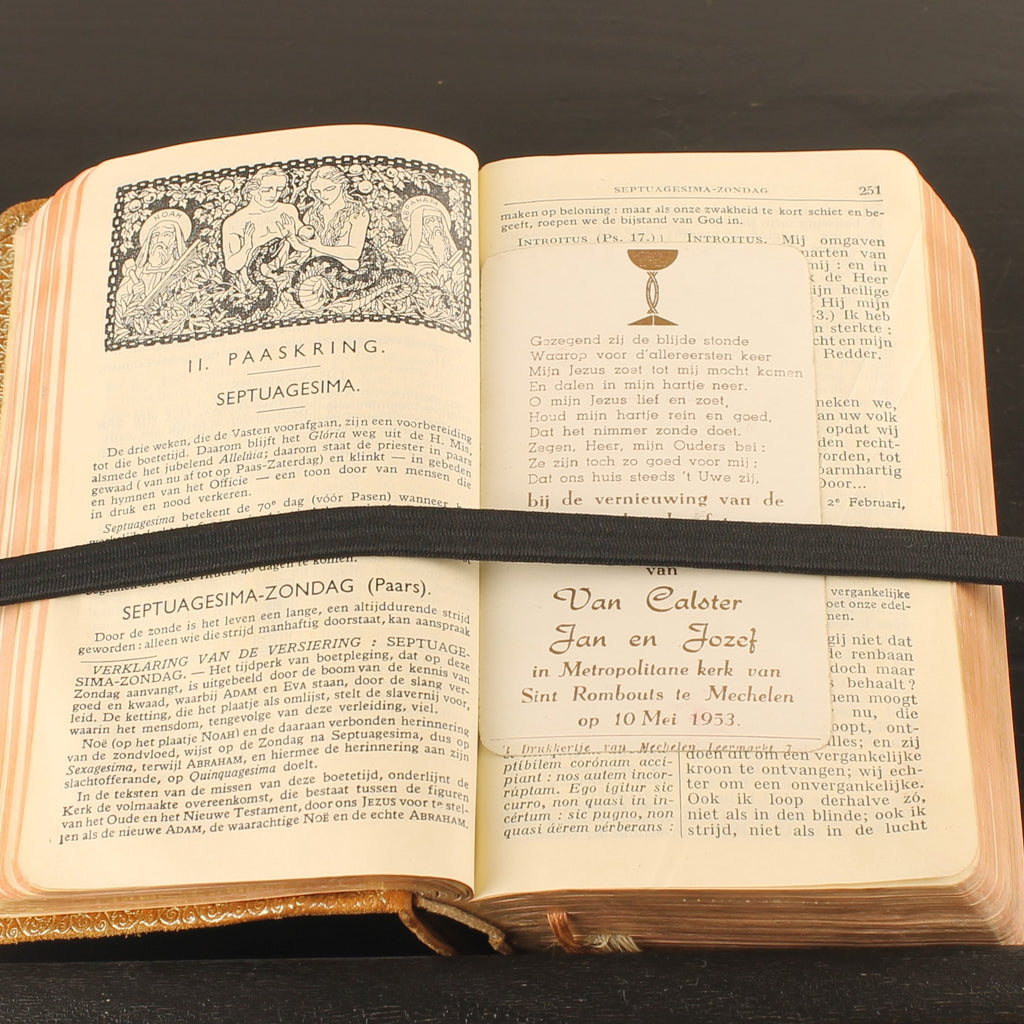 NOAH
II. PAASKRING.
SEPTUAGESIMA.
De drie weken, die de Vasten voorafgaan, zijn een voorbereiding
tot die boetetijd. Daarom blijft het Glória weg uit de H. Mis,
alsmede het jubelend Allelúia; daarom staat de priester in paars
gewaad (van nu af tot op Paas-Zaterdag) en klinkt — in gebeden
en hymnen van het Officie — een toon door van mensen die
in druk en nood verkeren.
Septuagesima betekent de 70e dag (vóór Pasen) wanneer
SEPTUAGESIMA-ZONDAG (Paars).
Door de zonde is het leven een lange, een altijddurende strijd
geworden: alleen wie die strijd manhaftig doorstaat, kan aanspraak
VERKLARING VAN DE VERSIERING : SEPTUAGE-
SIMA-ZONDAG. — Het tijdperk van boetpleging, dat op deze
Zondag aanvangt, is uitgebeeld door de boom van de kennis van
goed en kwaad, waarbij ADAM en EVA staan, door de slang ver-
leid. De ketting, die het plaatje als omlijst, stelt de slavernij voor,
waarin het mensdom, tengevolge van deze verleiding, viel.
Noë (op het plaatje NOAH) en de daaraan verbonden herinnering
van de zondvloed, wijst op de Zondag na Septuagesima, dus op
Sexagesima, terwijl ABRAHAM, en hiermee de herinnering aan zijn
slachtofferande, op Quinquagesima doelt.
In de teksten van de missen van deze boetetijd, onderlijnt de
Kerk de volmaakte overeenkomst, die bestaat tussen de figuren
van het Oude en het Nieuwe Testament, door ons JEZUS voor te stel-
len als de nieuwe ADAM, de waarachtige NOË en de echte ABRAHAM.
SEPTUAGESIMA-ZONDAG 251
maken op beloning : maar als onze zwakheid te kort schiet en be-
geeft, roepen we de bijstand van God in.
INTROITUS (Ps. 17.) INTROITUS. Mij omgaven
arten van
mij : en in
de Heer
ijn heilige
Hij mijn
3.) Ik heb
n sterkte :
cht en mijn
Redder.
Gezegend zij de blijde stonde
Waarop voor d'allereersten keer
Mijn Jezus zoet tot mij mocht komen
En dalen in mijn hartje neer.
O mijn Jezus lief en zoet,
Houd mijn hartje rein en goed,
Dat het nimmer zonde doet.
Zegen, Heer, mijn Ouders bei :
Ze zijn toch zo goed voor mij ;
Dat ons huis steeds 't Uwe zij,
bij de vernieuwing van de
van
Van Calster
Jan en Jozef
in Metropolitane kerk van
Sint Rombouts te Mechelen
op 10 Mei 1953.
't Drukkertje van Mechelen Leermarkt 7
meken we,
an uw volk
opdat wij
den recht-
orden, tot
barmhartig
Door...
2e Februari,
vergankelijke
oet onze edel-
men.
gij niet dat
de renbaan
doch maar
behaalt?
hem moogt
nu, die
oopt, ont-
lles; en zij
doen dit om een vergankelijke
kroon te ontvangen; wij ech-
ter om een onvergankelijke.
Ook ik loop derhalve zó,
niet als in den blinde; ook ik
strijd, niet als in de lucht
ptibilem corónam acci-
piant : nos autem incor-
rúptam. Ego ígitur sic
curro, non quasi in in-
cértum : sic pugno, non
quasi áërem vérberans :